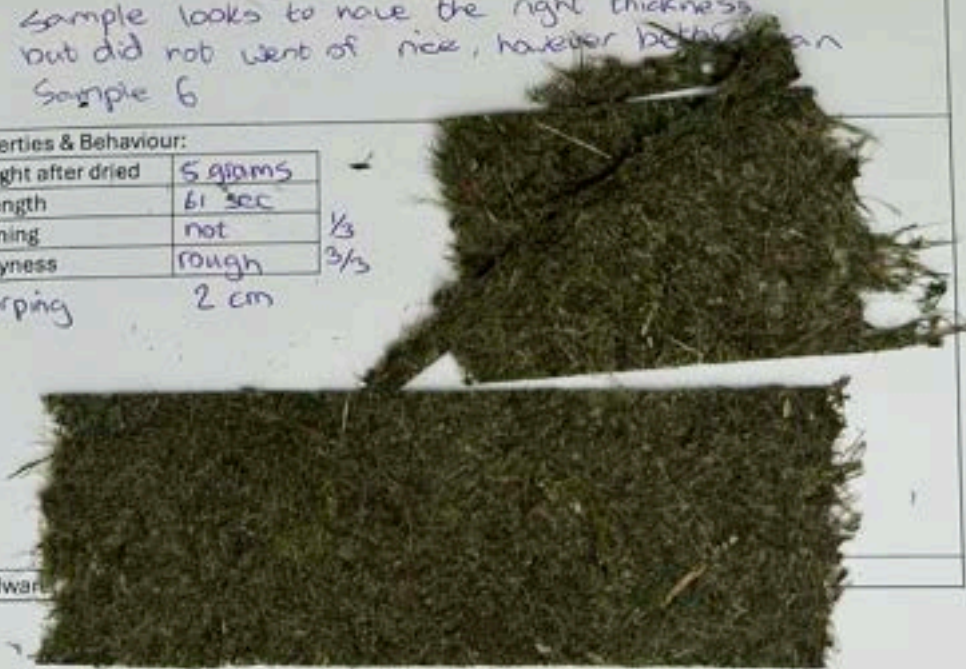 Sample looks to have the right thickness
but did not went of nice, however
Sample 6
erties & Behaviour:
ght after dried 5 grams
ength 61 sec
ning not 1/3
yness rough 3/3
rping 2 cm